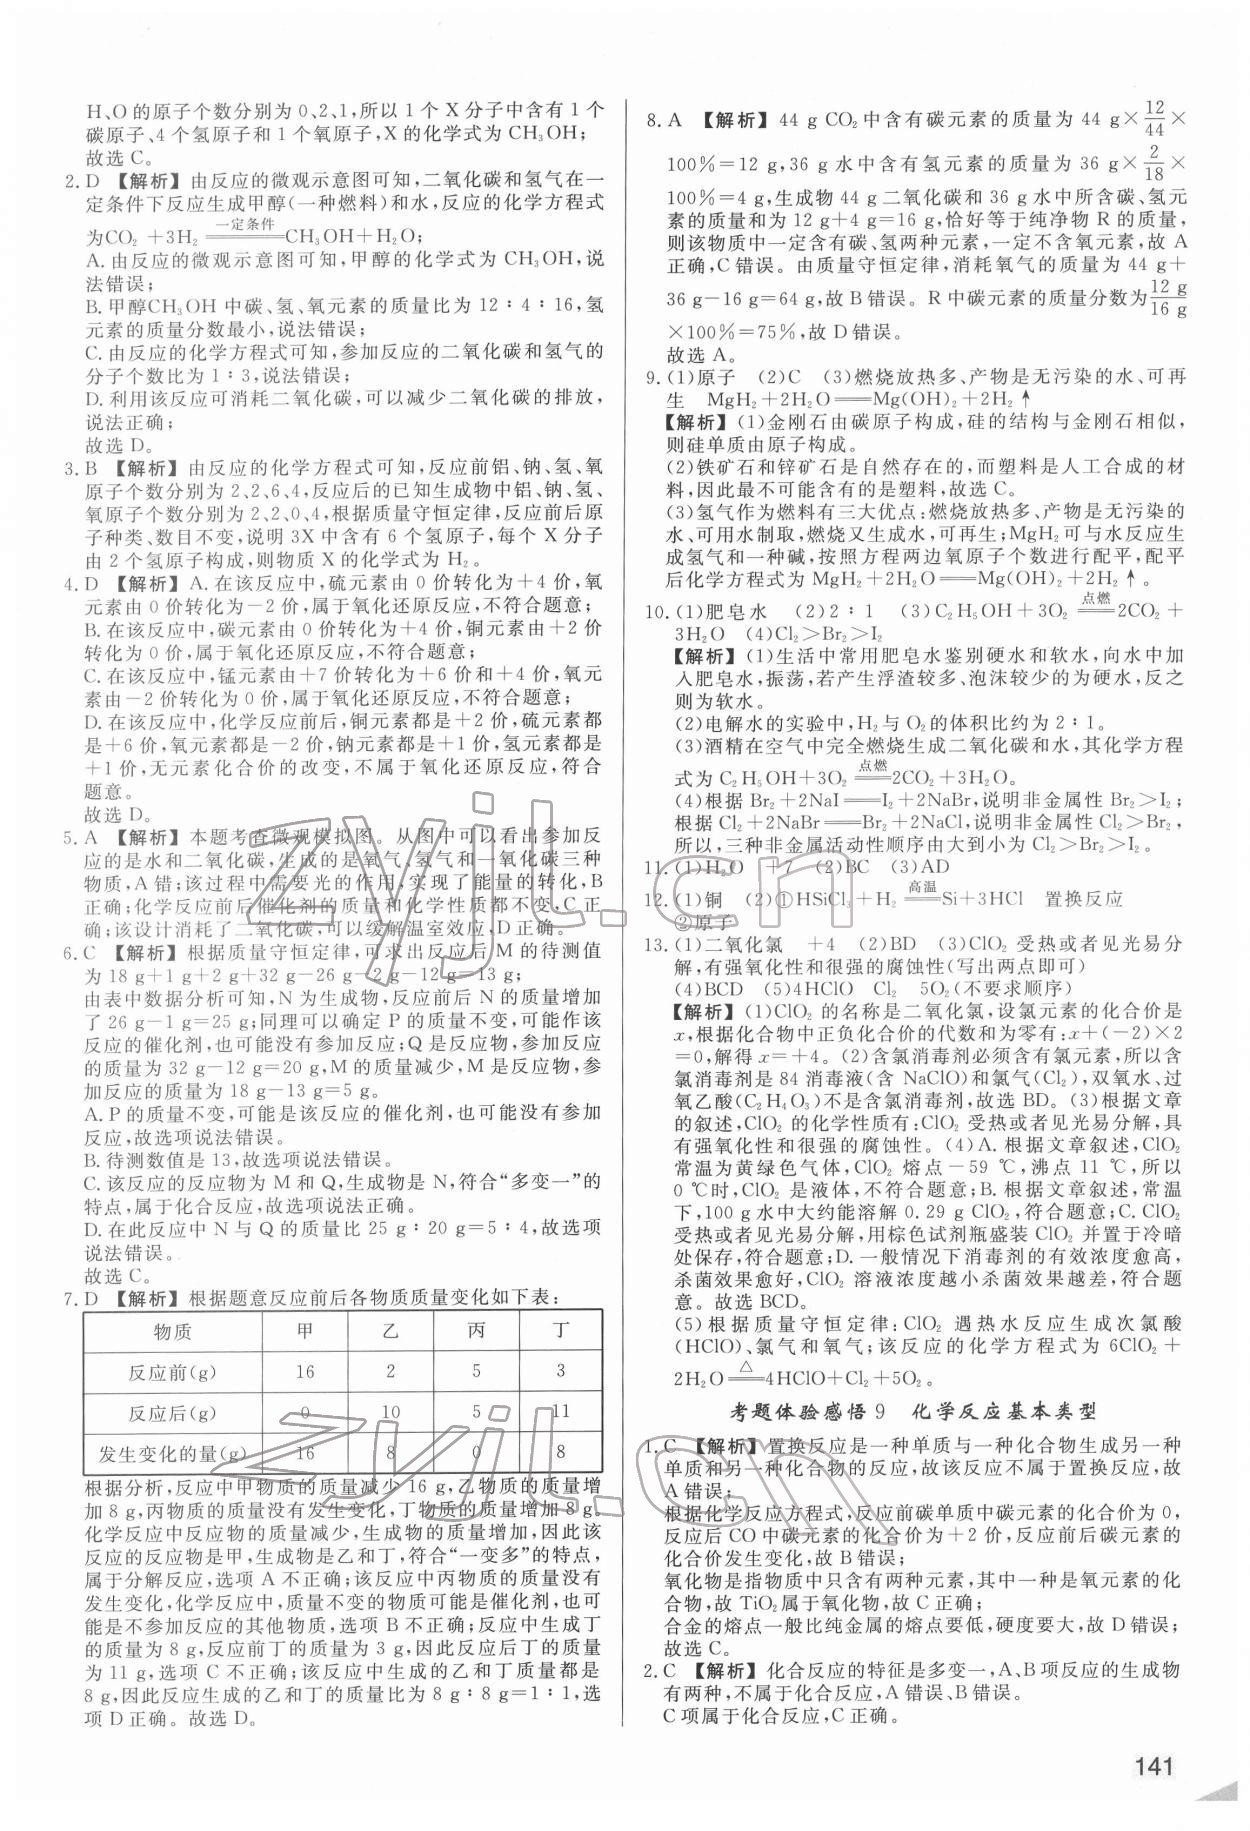 H、O的原子个数分别为0、2、1,所以1个X分子中含有1个
碳原子、4个氢原子和1个氧原子,X的化学式为CH₃OH;
故选C。
2. D 【解析】由反应的微观示意图可知,二氧化碳和氢气在一
定条件下反应生成甲醇(一种燃料)和水,反应的化学方程式
为CO₂+3H₂ 一定条件═══CH₃OH+H₂O;
A. 由反应的微观示意图可知,甲醇的化学式为CH₃OH,说
法错误;
B. 甲醇CH₃OH中碳、氢、氧元素的质量比为12∶4∶16,氢
元素的质量分数最小,说法错误;
C. 由反应的化学方程式可知,参加反应的二氧化碳和氢气的
分子个数比为1∶3,说法错误;
D. 利用该反应可消耗二氧化碳,可以减少二氧化碳的排放,
说法正确;
故选D。
3. B 【解析】由反应的化学方程式可知,反应前铝、钠、氢、氧
原子个数分别为2、2、6、4,反应后的已知生成物中铝、钠、氢、
氧原子个数分别为2、2、0、4,根据质量守恒定律,反应前后原
子种类、数目不变,说明3X中含有6个氢原子,每个X分子
由2个氢原子构成,则物质X的化学式为H₂。
4. D 【解析】A. 在该反应中,硫元素由0价转化为+4价,氧
元素由0价转化为-2价,属于氧化还原反应,不符合题意;
B. 在该反应中,碳元素由0价转化为+4价,铜元素由+2价
转化为0价,属于氧化还原反应,不符合题意;
C. 在该反应中,锰元素由+7价转化为+6价和+4价,氧元
素由-2价转化为0价,属于氧化还原反应,不符合题意;
D. 在该反应中,化学反应前后,铜元素都是+2价,硫元素都
是+6价,氧元素都是-2价,钠元素都是+1价,氢元素都是
+1价,无元素化合价的改变,不属于氧化还原反应,符合
题意。
故选D。
5. A 【解析】本题考查微观模拟图。从图中可以看出参加反
应的是水和二氧化碳,生成的是氧气、氢气和一氧化碳三种
物质,A错;该过程中需要光的作用,实现了能量的转化,B
正确;化学反应前后催化剂的质量和化学性质都不变,C正
确;该设计消耗了二氧化碳,可以缓解温室效应,D正确。
6. C 【解析】根据质量守恒定律,可求出反应后M的待测值
为18 g+1 g+2 g+32 g-26 g-2 g-12 g=13 g;
由表中数据分析可知,N为生成物,反应前后N的质量增加
了26 g-1 g=25 g;同理可以确定P的质量不变,可能作该
反应的催化剂,也可能没有参加反应;Q是反应物,参加反应
的质量为32 g-12 g=20 g,M的质量减少,M是反应物,参
加反应的质量为18 g-13 g=5 g。
A. P的质量不变,可能是该反应的催化剂,也可能没有参加
反应,故选项说法错误。
B. 待测数值是13,故选项说法错误。
C. 该反应的反应物为M和Q,生成物是N,符合“多变一”的
特点,属于化合反应,故选项说法正确。
D. 在此反应中N与Q的质量比25 g∶20 g=5∶4,故选项
说法错误。
故选C。
7. D 【解析】根据题意反应前后各物质质量变化如下表:
物质 甲 乙 丙 丁
反应前(g) 16 2 5 3
反应后(g) 0 10 5 11
发生变化的量(g) 16 8 0 8
根据分析,反应中甲物质的质量减少16 g,乙物质的质量增
加8 g,丙物质的质量没有发生变化,丁物质的质量增加8 g。
化学反应中反应物的质量减少,生成物的质量增加,因此该
反应的反应物是甲,生成物是乙和丁,符合“一变多”的特点,
属于分解反应,选项A不正确;该反应中丙物质的质量没有
发生变化,化学反应中,质量不变的物质可能是催化剂,也可
能是不参加反应的其他物质,选项B不正确;反应中生成丁
的质量为8 g,反应前丁的质量为3 g,因此反应后丁的质量
为11 g,选项C不正确;该反应中生成的乙和丁质量都是
8 g,因此反应生成的乙和丁的质量比为8 g∶8 g=1∶1,选
项D正确。故选D。
8. A 【解析】44 g CO₂中含有碳元素的质量为44 g×12/44×
100%=12 g,36 g水中含有氢元素的质量为36 g×2/18×
100%=4 g,生成物44 g二氧化碳和36 g水中所含碳、氢元
素的质量和为12 g+4 g=16 g,恰好等于纯净物R的质量,
则该物质中一定含有碳、氢两种元素,一定不含氧元素,故A
正确,C错误。由质量守恒定律,消耗氧气的质量为44 g+
36 g-16 g=64 g,故B错误。R中碳元素的质量分数为12 g/16 g
×100%=75%,故D错误。
故选A。
9. (1)原子 (2)C (3)燃烧放热多、产物是无污染的水、可再
生 MgH₂+2H₂O═══Mg(OH)₂+2H₂↑
【解析】(1)金刚石由碳原子构成,硅的结构与金刚石相似,
则硅单质由原子构成。
(2)铁矿石和锌矿石是自然存在的,而塑料是人工合成的材
料,因此最不可能含有的是塑料,故选C。
(3)氢气作为燃料有三大优点:燃烧放热多、产物是无污染的
水、可用水制取,燃烧又生成水,可再生;MgH₂可与水反应生
成氢气和一种碱,按照方程两边氧原子个数进行配平,配平
后化学方程式为MgH₂+2H₂O═══Mg(OH)₂+2H₂↑。
10. (1)肥皂水 (2)2∶1 (3)C₂H₅OH+3O₂ 点燃═══2CO₂+
3H₂O (4)Cl₂>Br₂>I₂
【解析】(1)生活中常用肥皂水鉴别硬水和软水,向水中加
入肥皂水,振荡,若产生浮渣较多、泡沫较少的为硬水,反之
则为软水。
(2)电解水的实验中,H₂与O₂的体积比约为2∶1。
(3)酒精在空气中完全燃烧生成二氧化碳和水,其化学方程
式为C₂H₅OH+3O₂ 点燃═══2CO₂+3H₂O。
(4)根据Br₂+2NaI═══I₂+2NaBr,说明非金属性Br₂>I₂;
根据Cl₂+2NaBr═══Br₂+2NaCl,说明非金属性Cl₂>Br₂,
所以,三种非金属活动性顺序由大到小为Cl₂>Br₂>I₂。
11. (1)H₂O +7 (2)BC (3)AD
12. (1)铜 (2)①HSiCl₃+H₂ 高温═══Si+3HCl 置换反应
②原子
13. (1)二氧化氯 +4 (2)BD (3)ClO₂受热或者见光易分
解,有强氧化性和很强的腐蚀性(写出两点即可)
(4)BCD (5)4HClO Cl₂ 5O₂(不要求顺序)
【解析】(1)ClO₂的名称是二氧化氯,设氯元素的化合价是
x,根据化合物中正负化合价的代数和为零有:x+(-2)×2
=0,解得x=+4。(2)含氯消毒剂必须含有氯元素,所以含
氯消毒剂是84消毒液(含NaClO)和氯气(Cl₂),双氧水、过
氧乙酸(C₂H₄O₃)不是含氯消毒剂,故选BD。(3)根据文章
的叙述,ClO₂的化学性质有:ClO₂受热或者见光易分解,具
有强氧化性和很强的腐蚀性。(4)A. 根据文章叙述,ClO₂
常温为黄绿色气体,ClO₂熔点-59 ℃,沸点11 ℃,所以
0 ℃时,ClO₂是液体,不符合题意;B. 根据文章叙述,常温
下,100 g水中大约能溶解0.29 g ClO₂,符合题意;C. ClO₂
受热或者见光易分解,用棕色试剂瓶盛装ClO₂并置于冷暗
处保存,符合题意;D. 一般情况下消毒剂的有效浓度愈高,
杀菌效果愈好,ClO₂溶液浓度越小杀菌效果越差,符合题
意。故选BCD。
(5)根据质量守恒定律:ClO₂遇热水反应生成次氯酸
(HClO)、氯气和氧气;该反应的化学方程式为6ClO₂+
2H₂O △═══4HClO+Cl₂+5O₂。
考题体验感悟9 化学反应基本类型
1. C 【解析】置换反应是一种单质与一种化合物生成另一种
单质和另一种化合物的反应,故该反应不属于置换反应,故
A错误;
根据化学反应方程式,反应前碳单质中碳元素的化合价为0,
反应后CO中碳元素的化合价为+2价,反应前后碳元素的
化合价发生变化,故B错误;
氧化物是指物质中只含有两种元素,其中一种是氧元素的化
合物,故TiO₂属于氧化物,故C正确;
合金的熔点一般比纯金属的熔点要低,硬度要大,故D错误;
故选C。
2. C 【解析】化合反应的特征是多变一,A、B项反应的生成物
有两种,不属于化合反应,A错误、B错误。
C项属于化合反应,C正确。
141
zyjl.cn
zyjl.cn